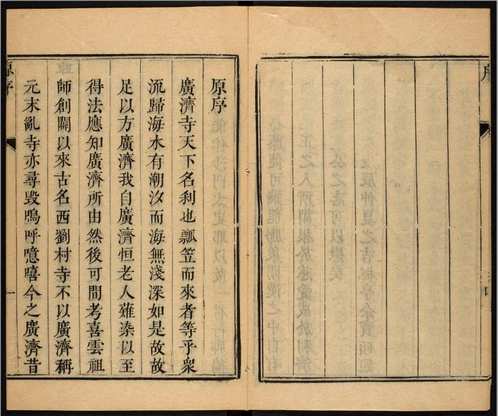 序
四
原序
廣濟寺天下名刹也瓢笠而來者等乎衆
流歸海水有潮汐而海無淺深如是故故
足以方廣濟我自廣濟恒老人薙染以至
得法應知廣濟所由然後可間考喜雲祖
師創闢以來古名西劉村寺不以廣濟稱
元末亂寺亦尋毀嗚呼噫嘻今之廣濟昔
原序
一